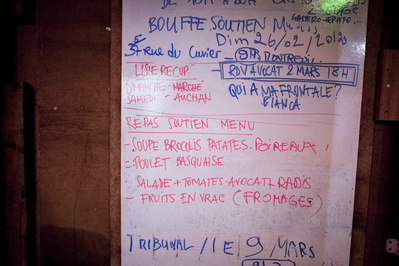 BOUFFE SOUTIEN
Dim 26/02/20
37 rue du Cuvier - MONTREUIL
LISTE RECUP.
RDV AVOCAT 2 MARS 18H
DIMANCHE - MARCHÉ
SAMEDI - AUCHAN
QUI A MA FRONTALE?
BIANCA
REPAS SOUTIEN MENU
- SOUPE BROCOLIS PATATES - POIREAUX
- POULET BASQUAISE
- SALADE + TOMATES - AVOCAT + RADIS
- FRUITS EN VRAC (FROMAGES)
TRIBUNAL / LE 9 MARS